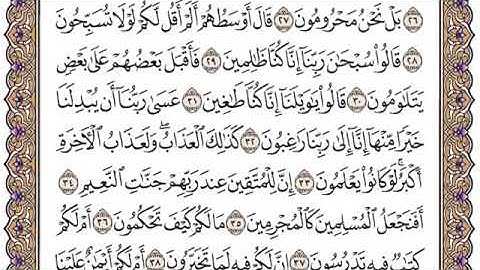 ٢٦ بَلْ نَحْنُ مَحْرُومُونَ ٢٧ قَالَ أَوْسَطُهُمْ أَلَمْ أَقُل لَّكُمْ لَوْلَا تُسَبِّحُونَ
٢٨ قَالُوا۟ سُبْحَٰنَ رَبِّنَآ إِنَّا كُنَّا ظَٰلِمِينَ ٢٩ فَأَقْبَلَ بَعْضُهُمْ عَلَىٰ بَعْضٍ
يَتَلَٰوَمُونَ ٣٠ قَالُوا۟ يَٰوَيْلَنَآ إِنَّا كُنَّا طَٰغِينَ ٣١ عَسَىٰ رَبُّنَآ أَن يُبْدِلَنَا
خَيْرًا مِّنْهَآ إِنَّآ إِلَىٰ رَبِّنَا رَٰغِبُونَ ٣٢ كَذَٰلِكَ ٱلْعَذَابُ ۖ وَلَعَذَابُ ٱلْءَاخِرَةِ
أَكْبَرُ ۚ لَوْ كَانُوا۟ يَعْلَمُونَ ٣٣ إِنَّ لِلْمُتَّقِينَ عِندَ رَبِّهِمْ جَنَّٰتِ ٱلنَّعِيمِ ٣٤
أَفَنَجْعَلُ ٱلْمُسْلِمِينَ كَٱلْمُجْرِمِينَ ٣٥ مَا لَكُمْ كَيْفَ تَحْكُمُونَ ٣٦ أَمْ لَكُمْ
كِتَٰبٌ فِيهِ تَدْرُسُونَ ٣٧ إِنَّ لَكُمْ فِيهِ لَمَا تَخَيَّرُونَ ٣٨ أَمْ لَكُمْ أَيْمَٰنٌ عَلَيْنَا